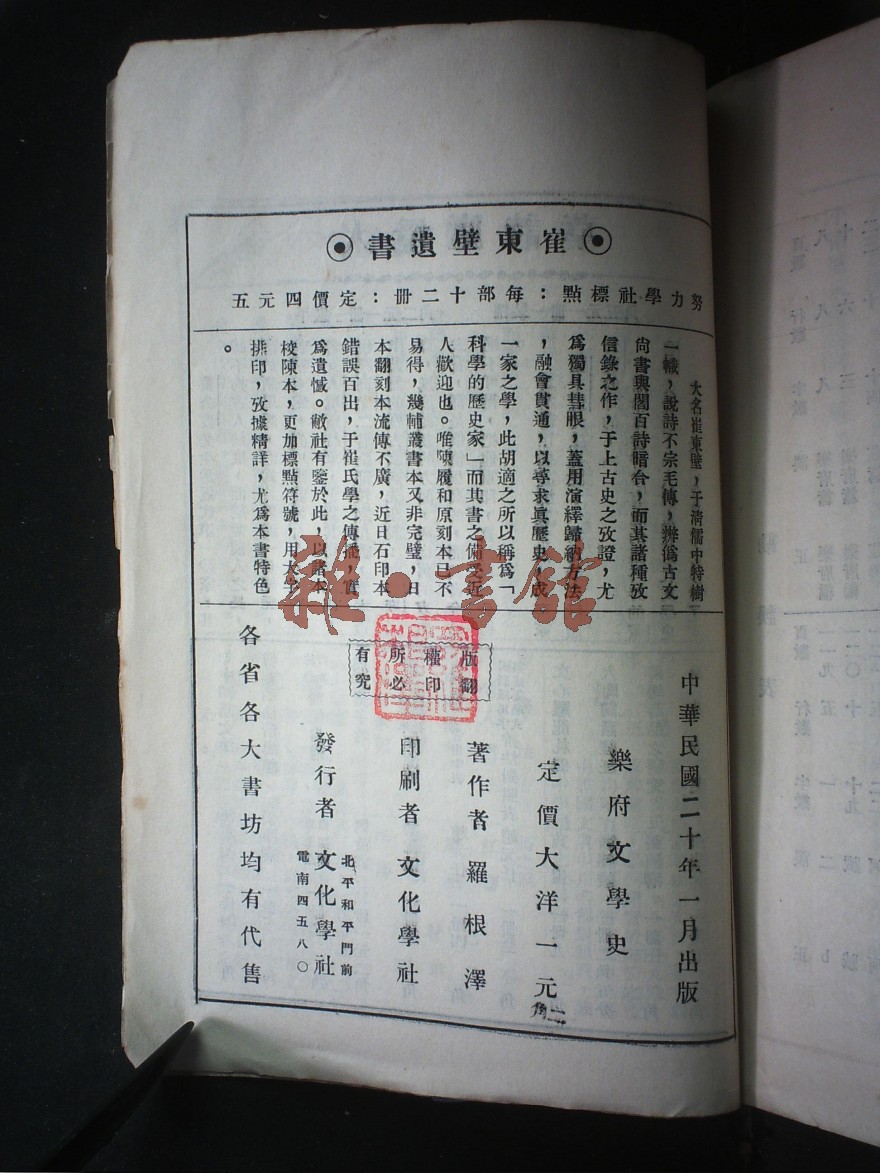 崔東壁遺書
努力學社標點：每部十二冊：定價四元五
大名崔東壁，于清儒中特樹
一幟，說詩不宗毛傳，辨僞古文
尚書與閻百詩暗合，而其諸種攷
信錄之作，于上古史之攷證，尤
爲獨具彗眼，蓋用演繹歸納方法
，融會貫通，以尋求眞歷史，成
一家之學，此胡適之所以稱爲「
科學的歷史家」而其書之備受近
人歡迎也。唯陳履和原刻本已不
易得，幾輔叢書本又非完璧，日
本翻刻本流傳不廣，近日石印本
錯誤百出，于崔氏學之傳播，實
爲遺憾。敝社有鑒於此，以諸本
校陳本，更加標點符號，用大字
排印，攷據精詳，尤爲本書特色
。
版權所有
翻印必究
中華民國二十年一月出版
樂府文學史
定價大洋一元二角
著作者 羅根澤
印刷者 文化學社
發行者 文化學社
北平和平門前
電南四五八〇
各省各大書坊均有代售
雜·書館